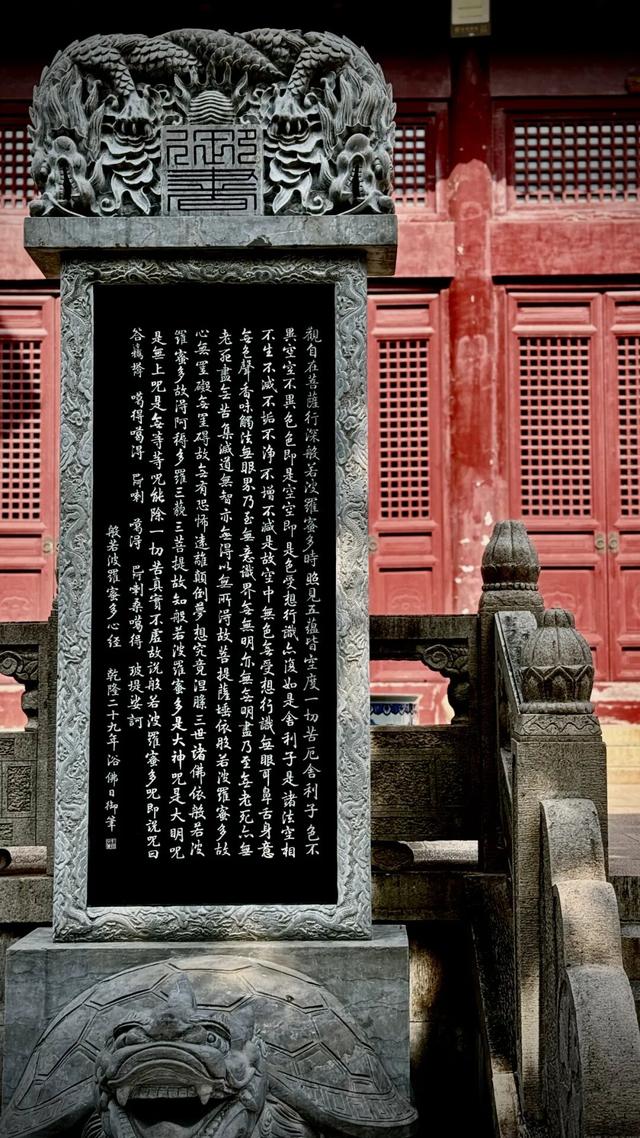 御書
觀自在菩薩行深般若波羅蜜多時照見五蘊皆空度一切苦厄舍利子色不
異空空不異色色即是空空即是色受想行識亦復如是舍利子是諸法空相
不生不滅不垢不净不增不減是故空中無色無受想行識無眼耳鼻舌身意
無色聲香味觸法無眼界乃至無意識界無無明亦無無明盡乃至無老死亦無
老死盡無苦集滅道無智亦無得以無所得故菩提薩埵依般若波羅蜜多故
心無罣礙無罣碍故無有恐怖遠離顛倒夢想究竟涅槃三世諸佛依般若波
羅蜜多故得阿耨多羅三藐三菩提故知般若波羅蜜多是大神呪是大明呪
是無上呪是無等等呪能除一切苦真實不虛故說般若波羅蜜多呪即說呪曰
谷鴉塔 噶得噶得 巴喇 噶得 巴喇桑噶得 玻提娑訶
般若波羅蜜多心經 乾隆二十九年浴佛日御筆